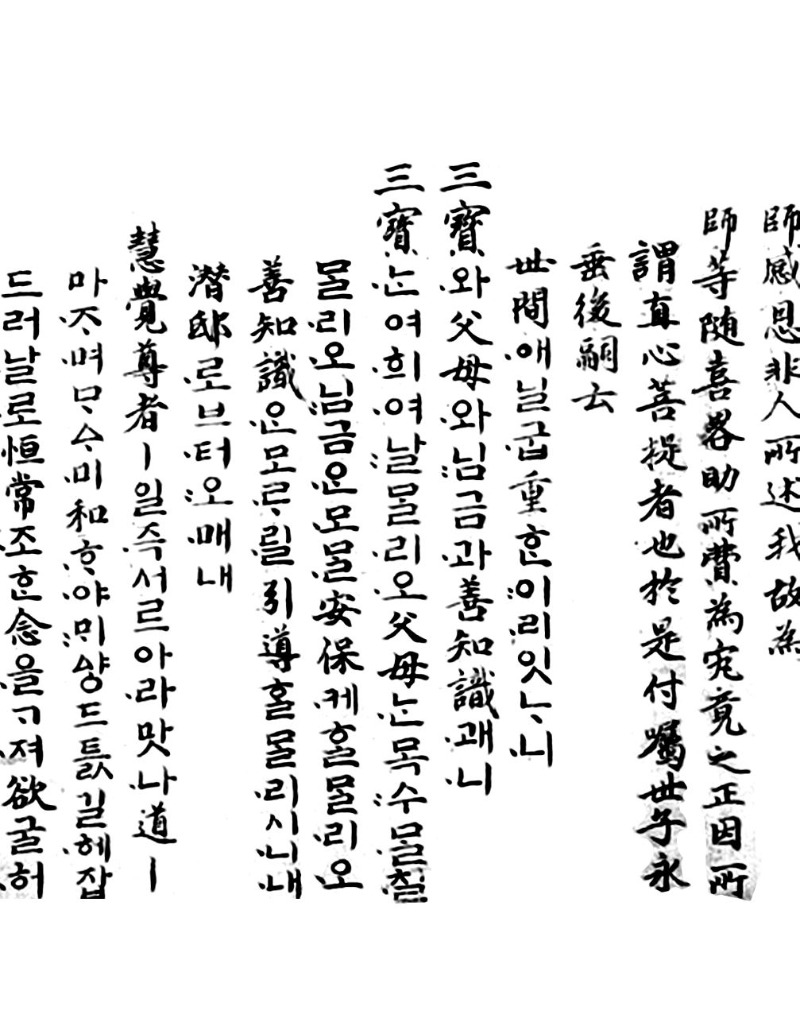 師感恩非人所述我故為
師等随喜畧助所費為宄竟之正因所
謂直心菩提者也於是付囑世子永
垂後嗣云
世間애닐굽重ᄒᆞᆫ이리잇ᄂᆞ니
三寶와父母와님금과善知識괘니
三寶ᄂᆞᆫ여희여날몰리오父母ᄂᆞᆫ목수믈칠
몰리오님금은모몰安保케홀몰리오
善知識은모ᄅᆞ릴引導홀몰리시니내
潛邸로브터오매내
慧覺尊者ㅣ일즉서르아라맛나道ㅣ
마ᄌᆞ며ᄆᆞᅀᆞ미和ᄒᆞ야ᄆᆡᅀᅣᇰ드틄길헤잡
드러날로恒常조ᄒᆞᆫ念을ᄀᆞ져欲굴허